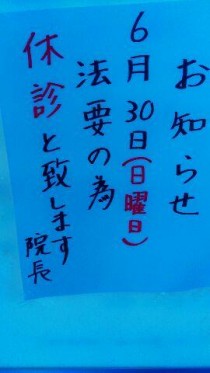 お知らせ
6月30日(日曜日)
法要の為
休診と致します
院長